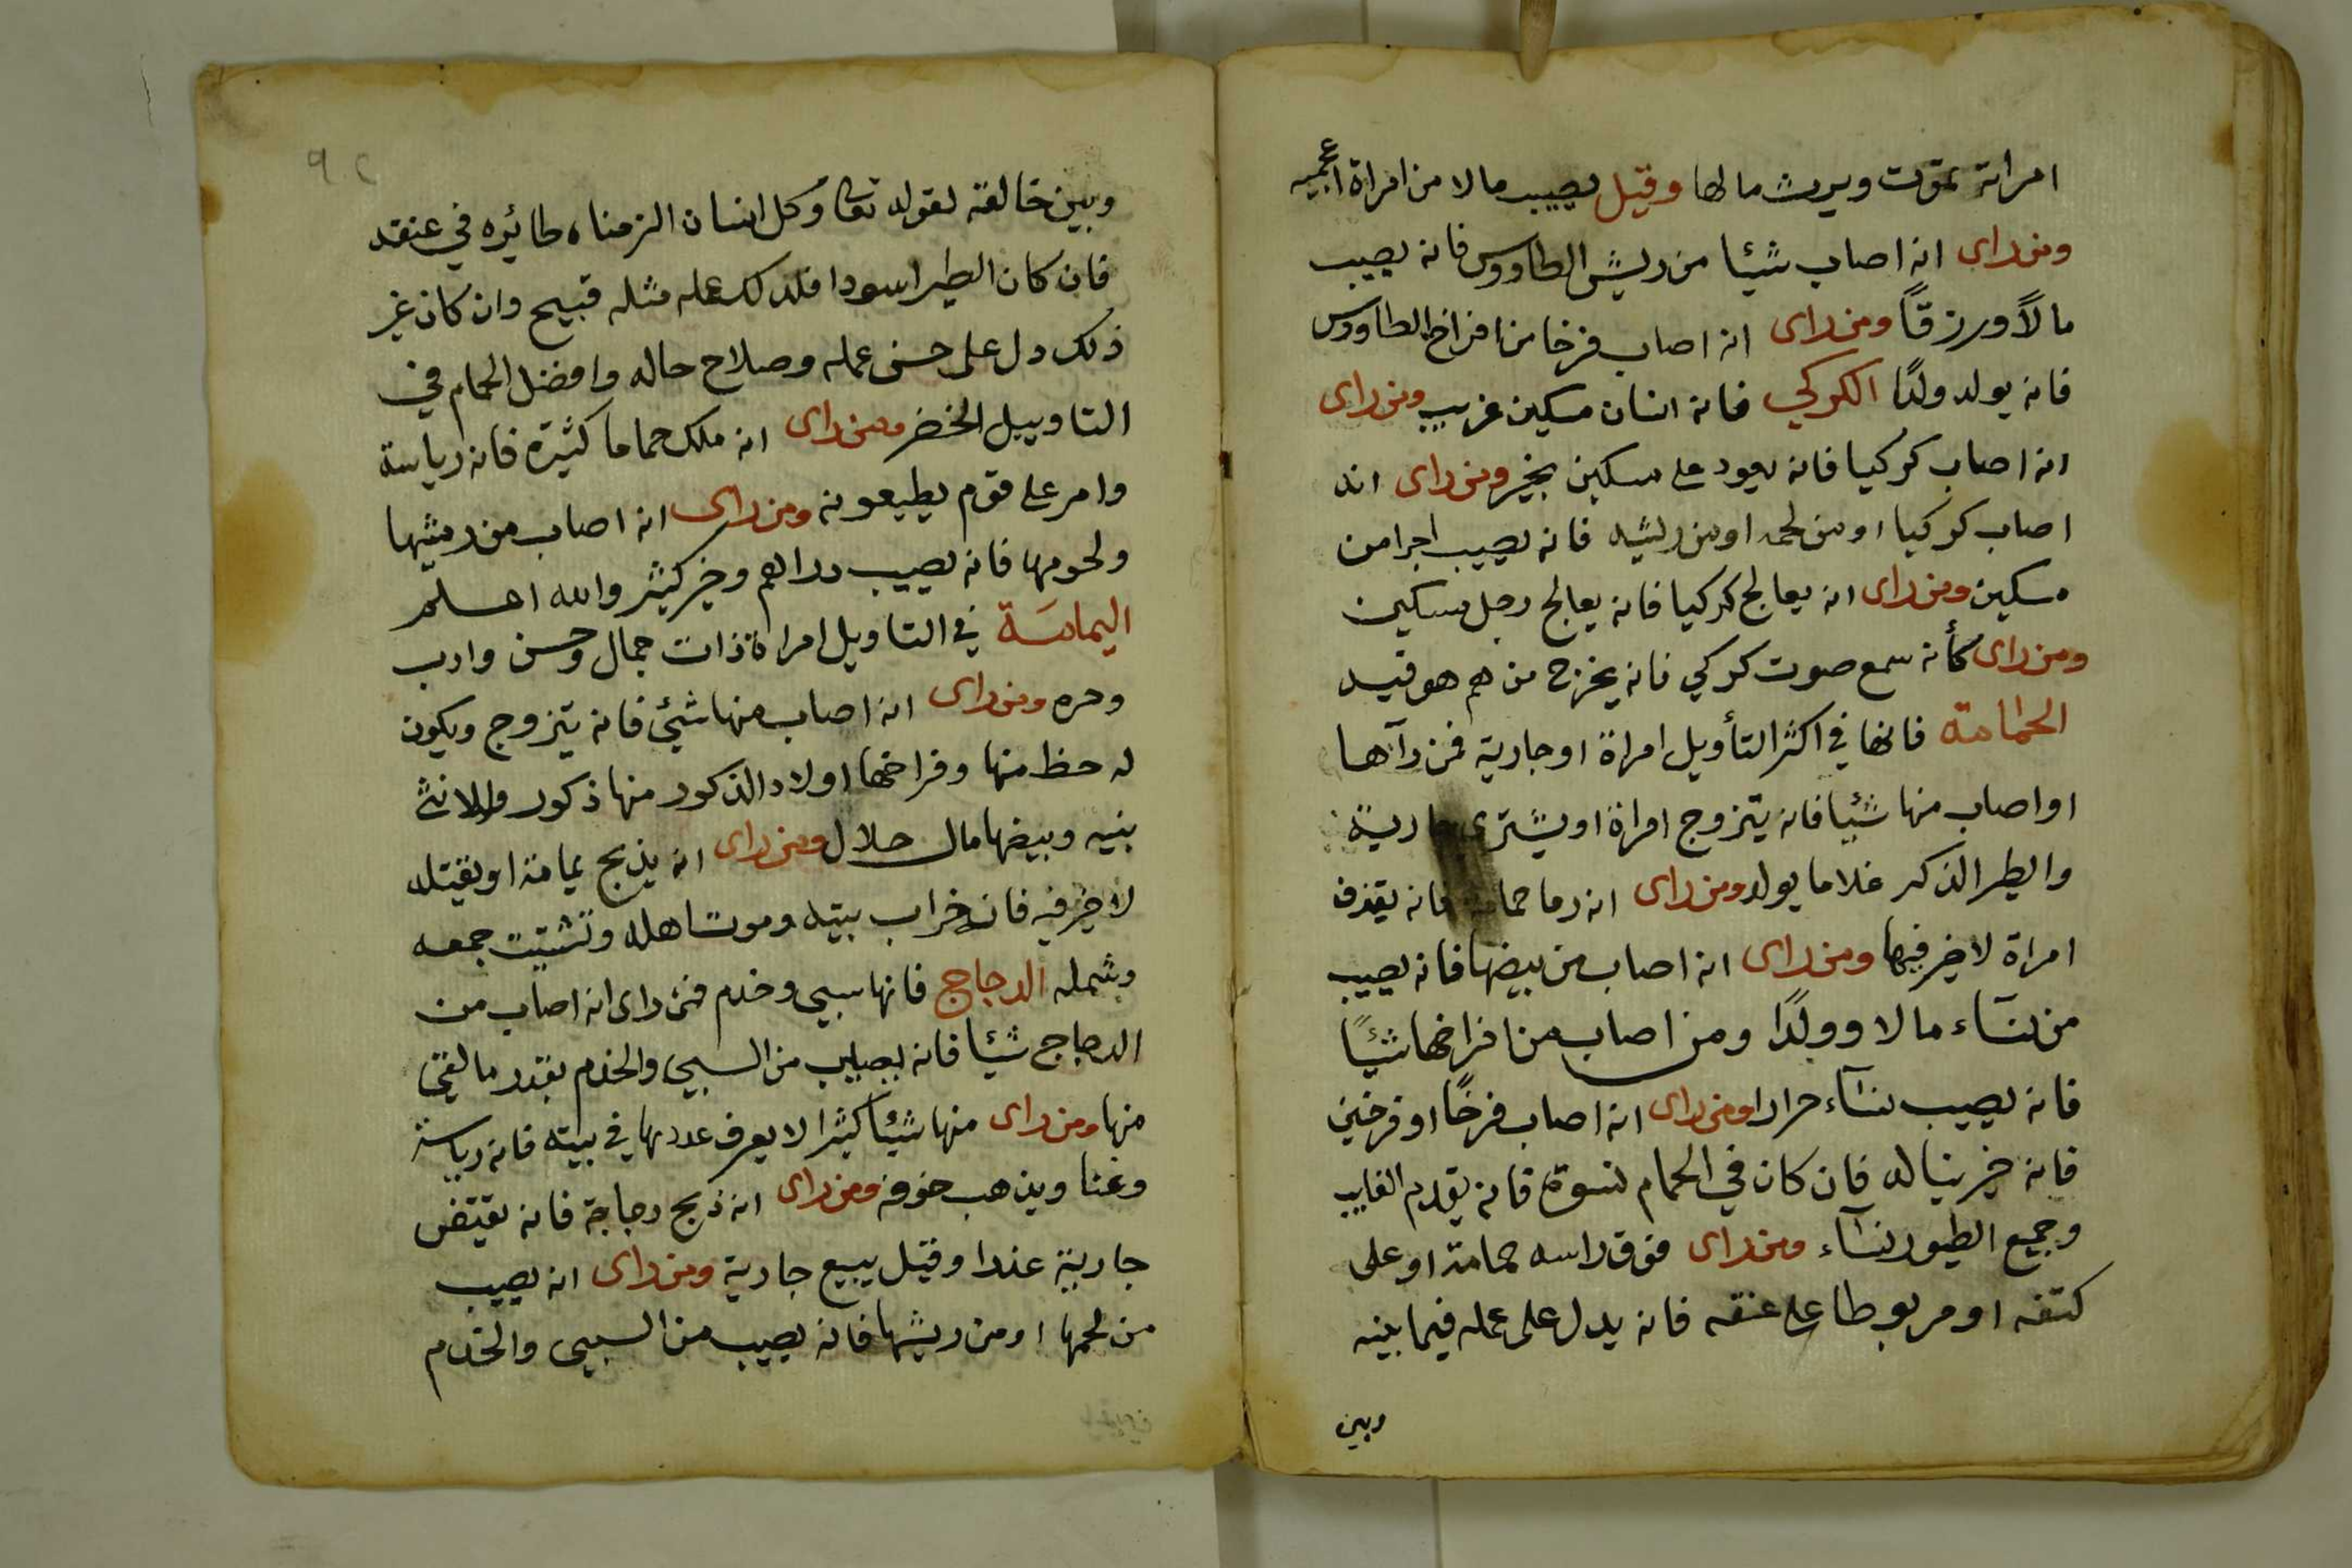 امراته تموت ويرث مالها وقيل يصيب مالا من امراة اعجميه
ومن راى انه اصاب شيئا من ريش الطاووس فانه يصيب
مالاً ورزقاً ومن راى انه اصاب فرخا من افراخ الطاووس
فانه يولد ولدًا الكركي فانه انسان مسكين غريب ومن راى
انه اصاب كركيا فانه يعود على مسكين بخير ومن راى انه
اصاب كركيا او من لحمه او من ريشه فانه يصيب اجرا من
مسكين ومن راى انه يعالج كركيا فانه يعالج رجل مسكين
ومن راى كأنه سمع صوت كركي فانه يخرج من هم هو فيه
الحمامة فانها في اكثر التأويل امراة او جارية فمن رآها
او اصاب منها شيئا فانه يتزوج امراة او يشترى جارية
والطير الذكر غلاما يولد ومن راى انه رما حمامة فانه يقذف
امراة لا خير فيها ومن راى انه اصاب من بيضها فانه يصيب
من نسآء مالا وولدًا ومن اصاب من افراخها شيئًا
فانه يصيب نسآء حرارا ومن راى انه اصاب فرخًا او فرخين
فانه خير يناله فان كان في الحمام نسوة فانه يقدم الغايب
وجميع الطيور نسآء ومن راى فوق راسه حمامة او على
كتفه او مربوطا على عنقه فانه يدل على عمله فيما بينه
وبين
٩٢
وبين خالقه لقوله تعالى وكل انسان الزمناه طائره في عنقه
فان كان الطير اسودا فلذلك عمله مثله قبيح وان كان غير
ذلك دل على حسن عمله وصلاح حاله وافضل الحمام في
التاوييل الخضر ومن راى انه ملك حماما كثيرة فانه رياسة
وامر على قوم يطيعونه ومن راى انه اصاب من ريشها
ولحومها فانه يصيب دراهم وخير كثير والله اعلم
اليمامَة في التاويل امراة ذات جمال وحسن وادب
وحره ومن راى انه اصاب منها شئ فانه يتزوج ويكون
له حظ منها وفراخها اولاد الذكور منها ذكور والانث
بنيه وبيضها مال حلال ومن راى انه يذبح يمامة او يقتله
لا خير فيه فانه خراب بيته وموت اهله وتشتيت جمعه
وشمله الدجاج فانها سبي وخدم فمن راى انه اصاب من
الدجاج شيئا فانه يصيب من السبي والخدم بقدر ما لقى
منها ومن راى منها شيئا كثيرا لا يعرف عددها في بيته فانه رياسة
وغنا ويذهب خوفه ومن راى انه ذبح دجاجة فانه يفتض
جارية عذرا وقيل يبيع جارية ومن راى انه يصيب
من لحمها او من ريشها فانه يصيب من السبي والخدم